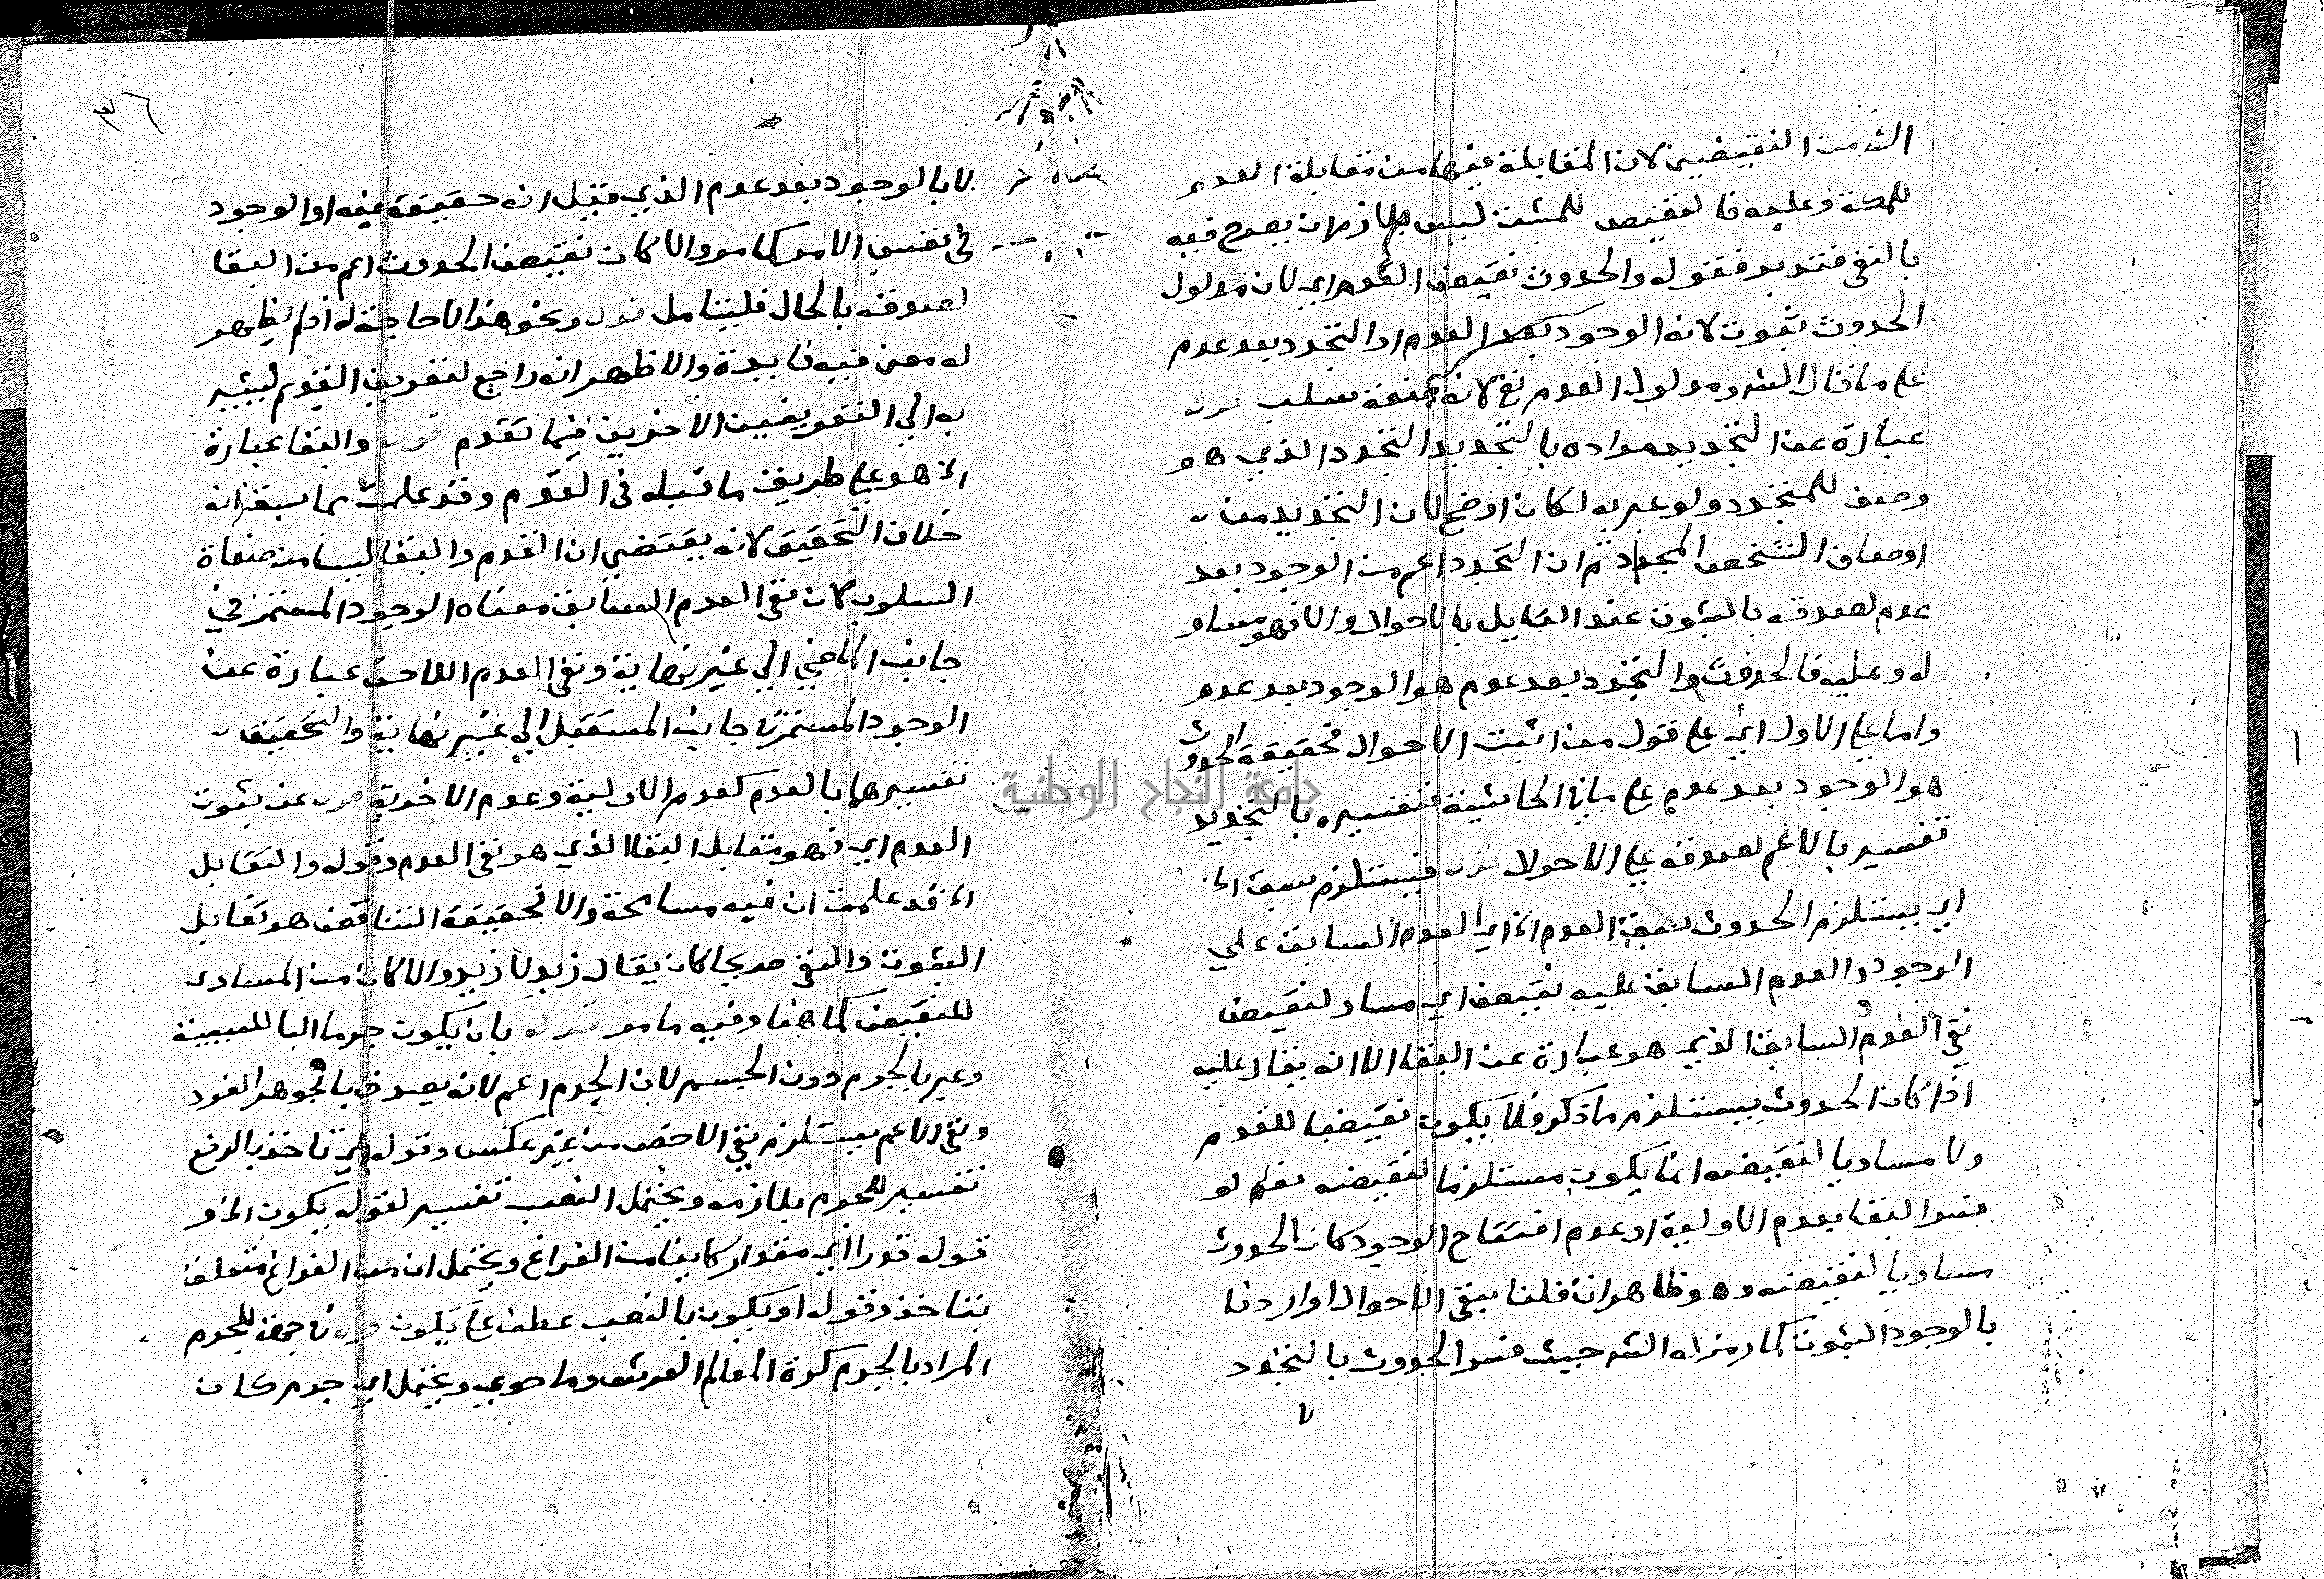 الشر من النقيضين لان المقابلة بينهما من مقابلة العدم
للملكة وعليه فالنقيض للمثبت ليس بلازم ان يصرح فيه
بالنفي فتدبر فقوله والحدوث نقيض القدم اي لان مدلول
الحدوث ثبوت لانه الوجود بعد العدم او التجدد بعد عدم
على ما قال الشر ومدلول القدم نفي لانه صفة سلب قوله
عبارة عن التجديد مراده بالتجديد التجدد الذي هو
وصف للمتجدد ولو عبر به لكان اوضح لان التجديد من
اوصاف الشخص المجدد ثم ان التجدد اعم من الوجود بعد
عدم لصدقه بالثبوت عند القايل بالاحوال والا فهو مساو
له وعليه فالحدوث والتجدد بعد عدم هو الوجود بعد عدم
واما على الاول اي على قول من اثبت الاحوال فحقيقة الحدوث
هو الوجود بعد عدم على ما في الحاشية فتفسيره بالتجديد
تفسير بالاعم لصدقه على الاحوال قوله فيستلزم سبق الخ
اي يستلزم الحدوث سبق العدم الخ اي العدم السابق علي
الوجود والعدم السابق عليه نقيض اي مساو لنقيض
نفي العدم السابق الذي هو عبارة عن البقا الا انه يقال عليه
اذا كان الحدوث يستلزم ما ذكر فلا يكون نقيضا للقدم
ولا مساويا لنقيضه انما يكون مستلزما لنقيضه نعم لو
فسر البقا بعدم الاولية او عدم افتتاح الوجود كان الحدوث
مساويا لنقيضه وهو ظاهر ان قلنا بنفي الاحوال او اردنا
بالوجود الثبوت كما رمز له الشر حيث فسر الحدوث بالتجدد
لا
٣٦
لا بالوجود بعد عدم الذي قيل انه حقيقة فيه او الوجود
في نفس الامر كما مر والا كان نقيض الحدوث اعم من البقا
لصدقه بالحال فليتامل قوله ونحو هذا لا حاجة له اذ لم يظهر
له معنى فيه فايدة والاظهر انه راجع لتعريف القدم ليشير
به الي التعريفين الاخرين فيما تقدم قوله والبقا عبارة
الخ هو على طريق ما قبله في القدم وقد علمت مما سبق انه
خلاف التحقيق لانه يقتضي ان القدم والبقا ليسا من صفاة
السلوب لان نفي العدم السابق معناه الوجود المستمر في
جانب الماضي الي غير نهاية ونفي العدم اللاحق عبارة عن
الوجود المستمر في جانب المستقبل الي غير نهاية والتحقيق
تفسيرهما بالعدم كعدم الاولية وعدم الاخرية قوله عن ثبوت
العدم اي فهو مقابل البقا الذي هو نفي العدم وقوله والتقابل
الخ قد علمت ان فيه مسامحة والا فحقيقة التناقض هو تقابل
الثبوت والنفي صريحا كان يقال زيد لا زيد والا كان من المساوي
للنقيض كما هنا وفيه ما مر قوله بان يكون جرما البا للسببية
وعبر بالجرم دون الجسم لان الجرم اعم لانه يصدق بالجوهر الفرد
ونفي الاعم يستلزم نفي الاخص من غير عكس وقوله اي تاخذ بالرفع
تفسير للجرم بلازمه ويحتمل النصب تفسير لقوله يكون الخ و
قوله قدرا اي مقدار كاينا من الفراغ ويحتمل ان من الفراغ متعلق
بتاخذ وقوله او يكون بالنصب عطف على يكون قوله في جهة للجرم
المراد بالجرم كرة العالم العرش وما حوي ويحتمل اي جرم كان
جامعة النجاح الوطنية